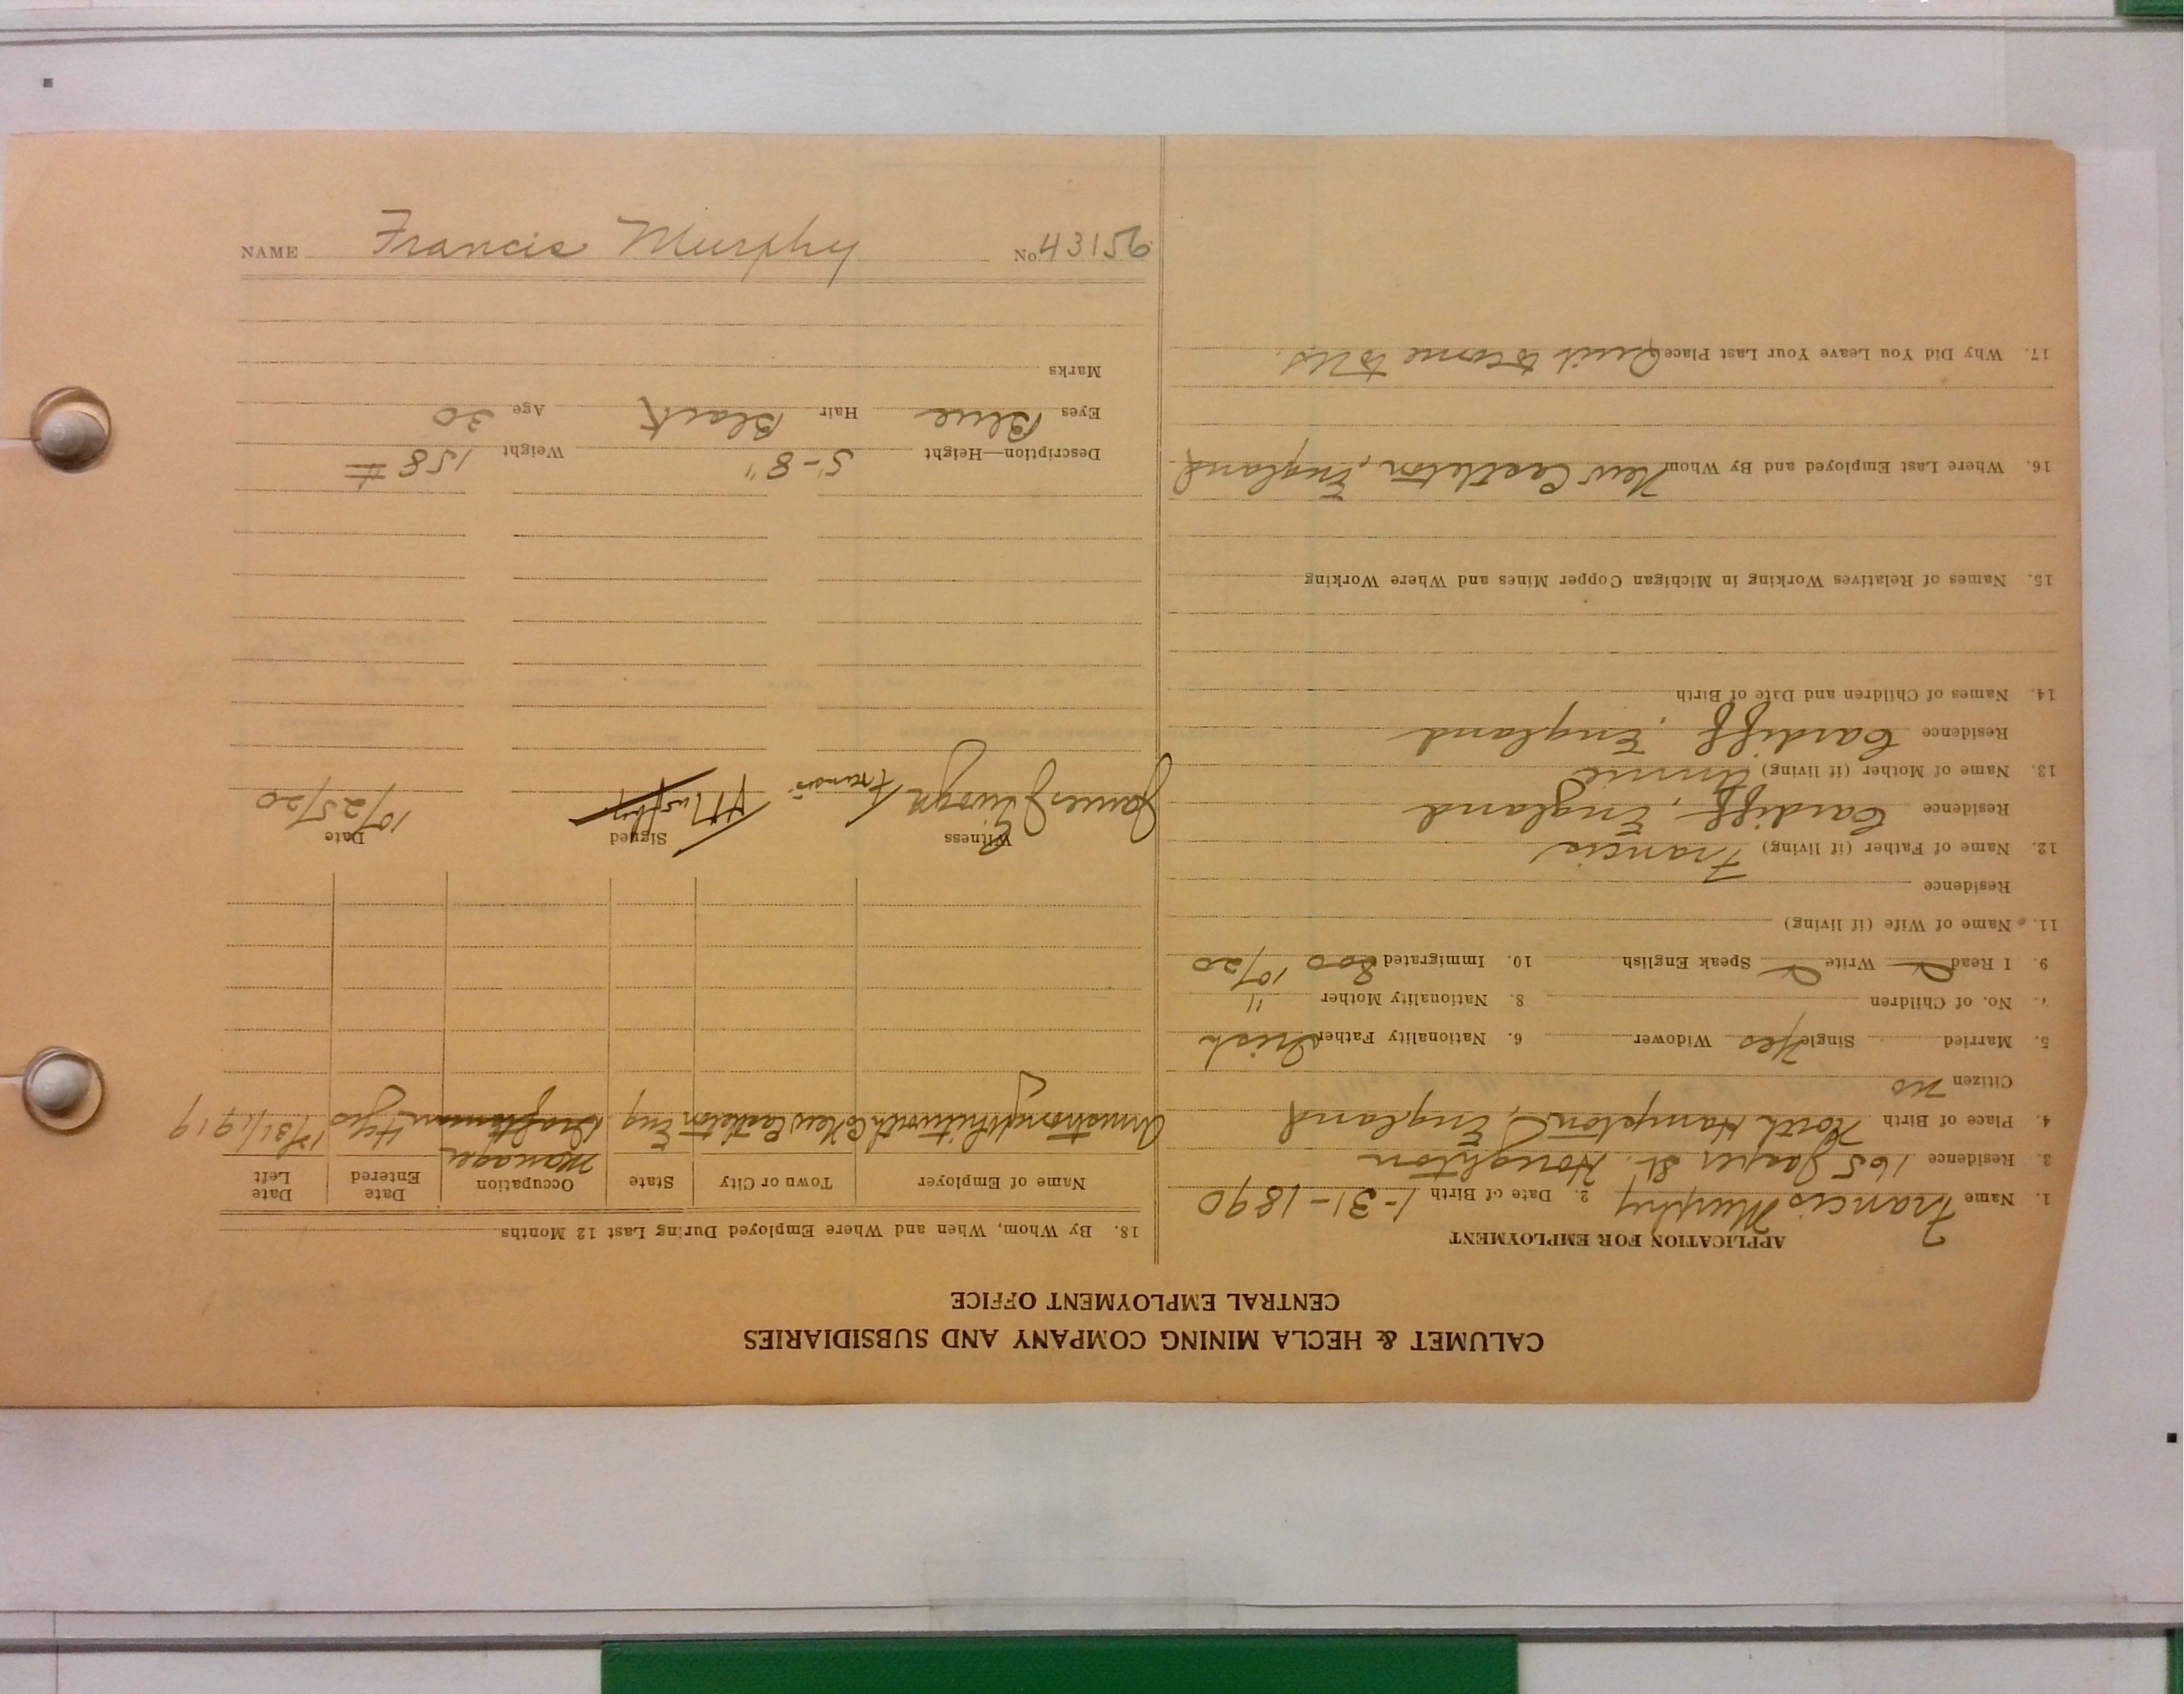 CALUMET & HECLA MINING COMPANY AND SUBSIDIARIES
CENTRAL EMPLOYMENT OFFICE
APPLICATION FOR EMPLOYMENT
1. Name Francis Murphy 2. Date of Birth 1-31-1890
3. Residence 165 Jasper St. Houghton
4. Place of Birth North Hampton, England
Citizen no
5. Married Single Yes Widower 6. Nationality Father Irish
7. No. of Children 8. Nationality Mother "
9. I Read Write Speak English 10. Immigrated Soo 10/20
11. Name of Wife (if living)
Residence
12. Name of Father (if living) Francis
Residence Cardiff, England
13. Name of Mother (if living) Annie
Residence Cardiff, England
14. Names of Children and Date of Birth
15. Names of Relatives Working in Michigan Copper Mines and Where Working
16. Where Last Employed and By Whom New Castleton, England
17. Why Did You Leave Your Last Place Quit to come to U.S.
18. By Whom, When and Where Employed During Last 12 Months
Name of Employer Town or City State Occupation Date Entered Date Left
Manager
Armstrong Whitworth Co New Castleton Eng Draftsman 4 yrs 12/31/1919
Witness Signed Date
James Francis Murphy 10/25/20
Description—Height 5'-8" Weight 158 #
Eyes Blue Hair Black Age 30
Marks
NAME Francis Murphy No. 43156